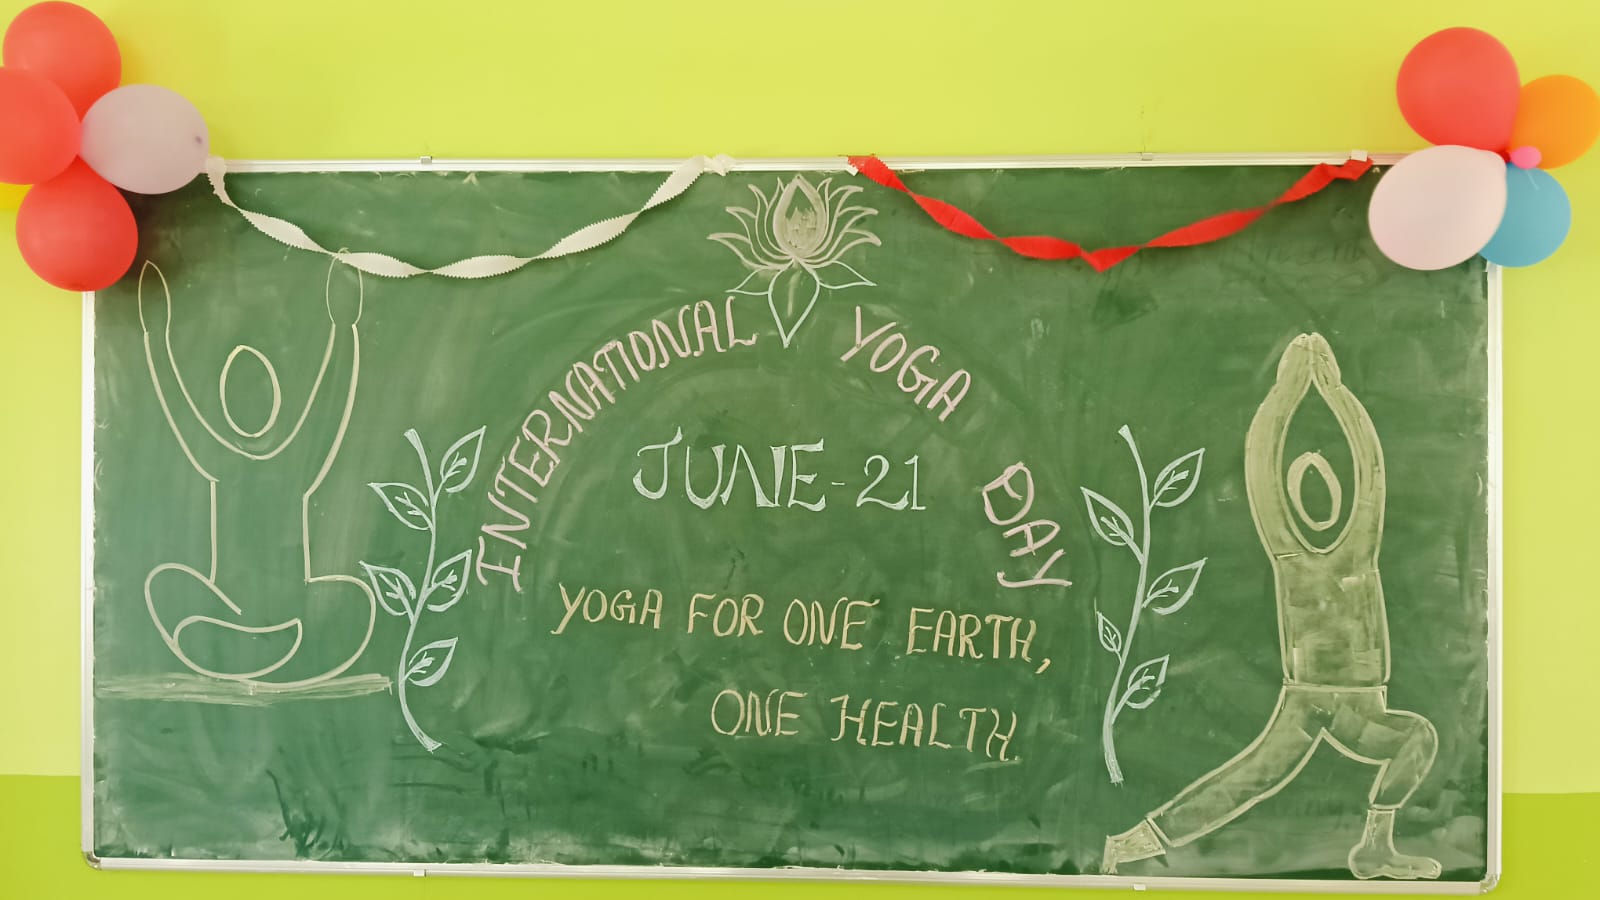 INTERNATIONAL YOGA DAY
JUNE-21
YOGA FOR ONE EARTH,
ONE HEALTH.